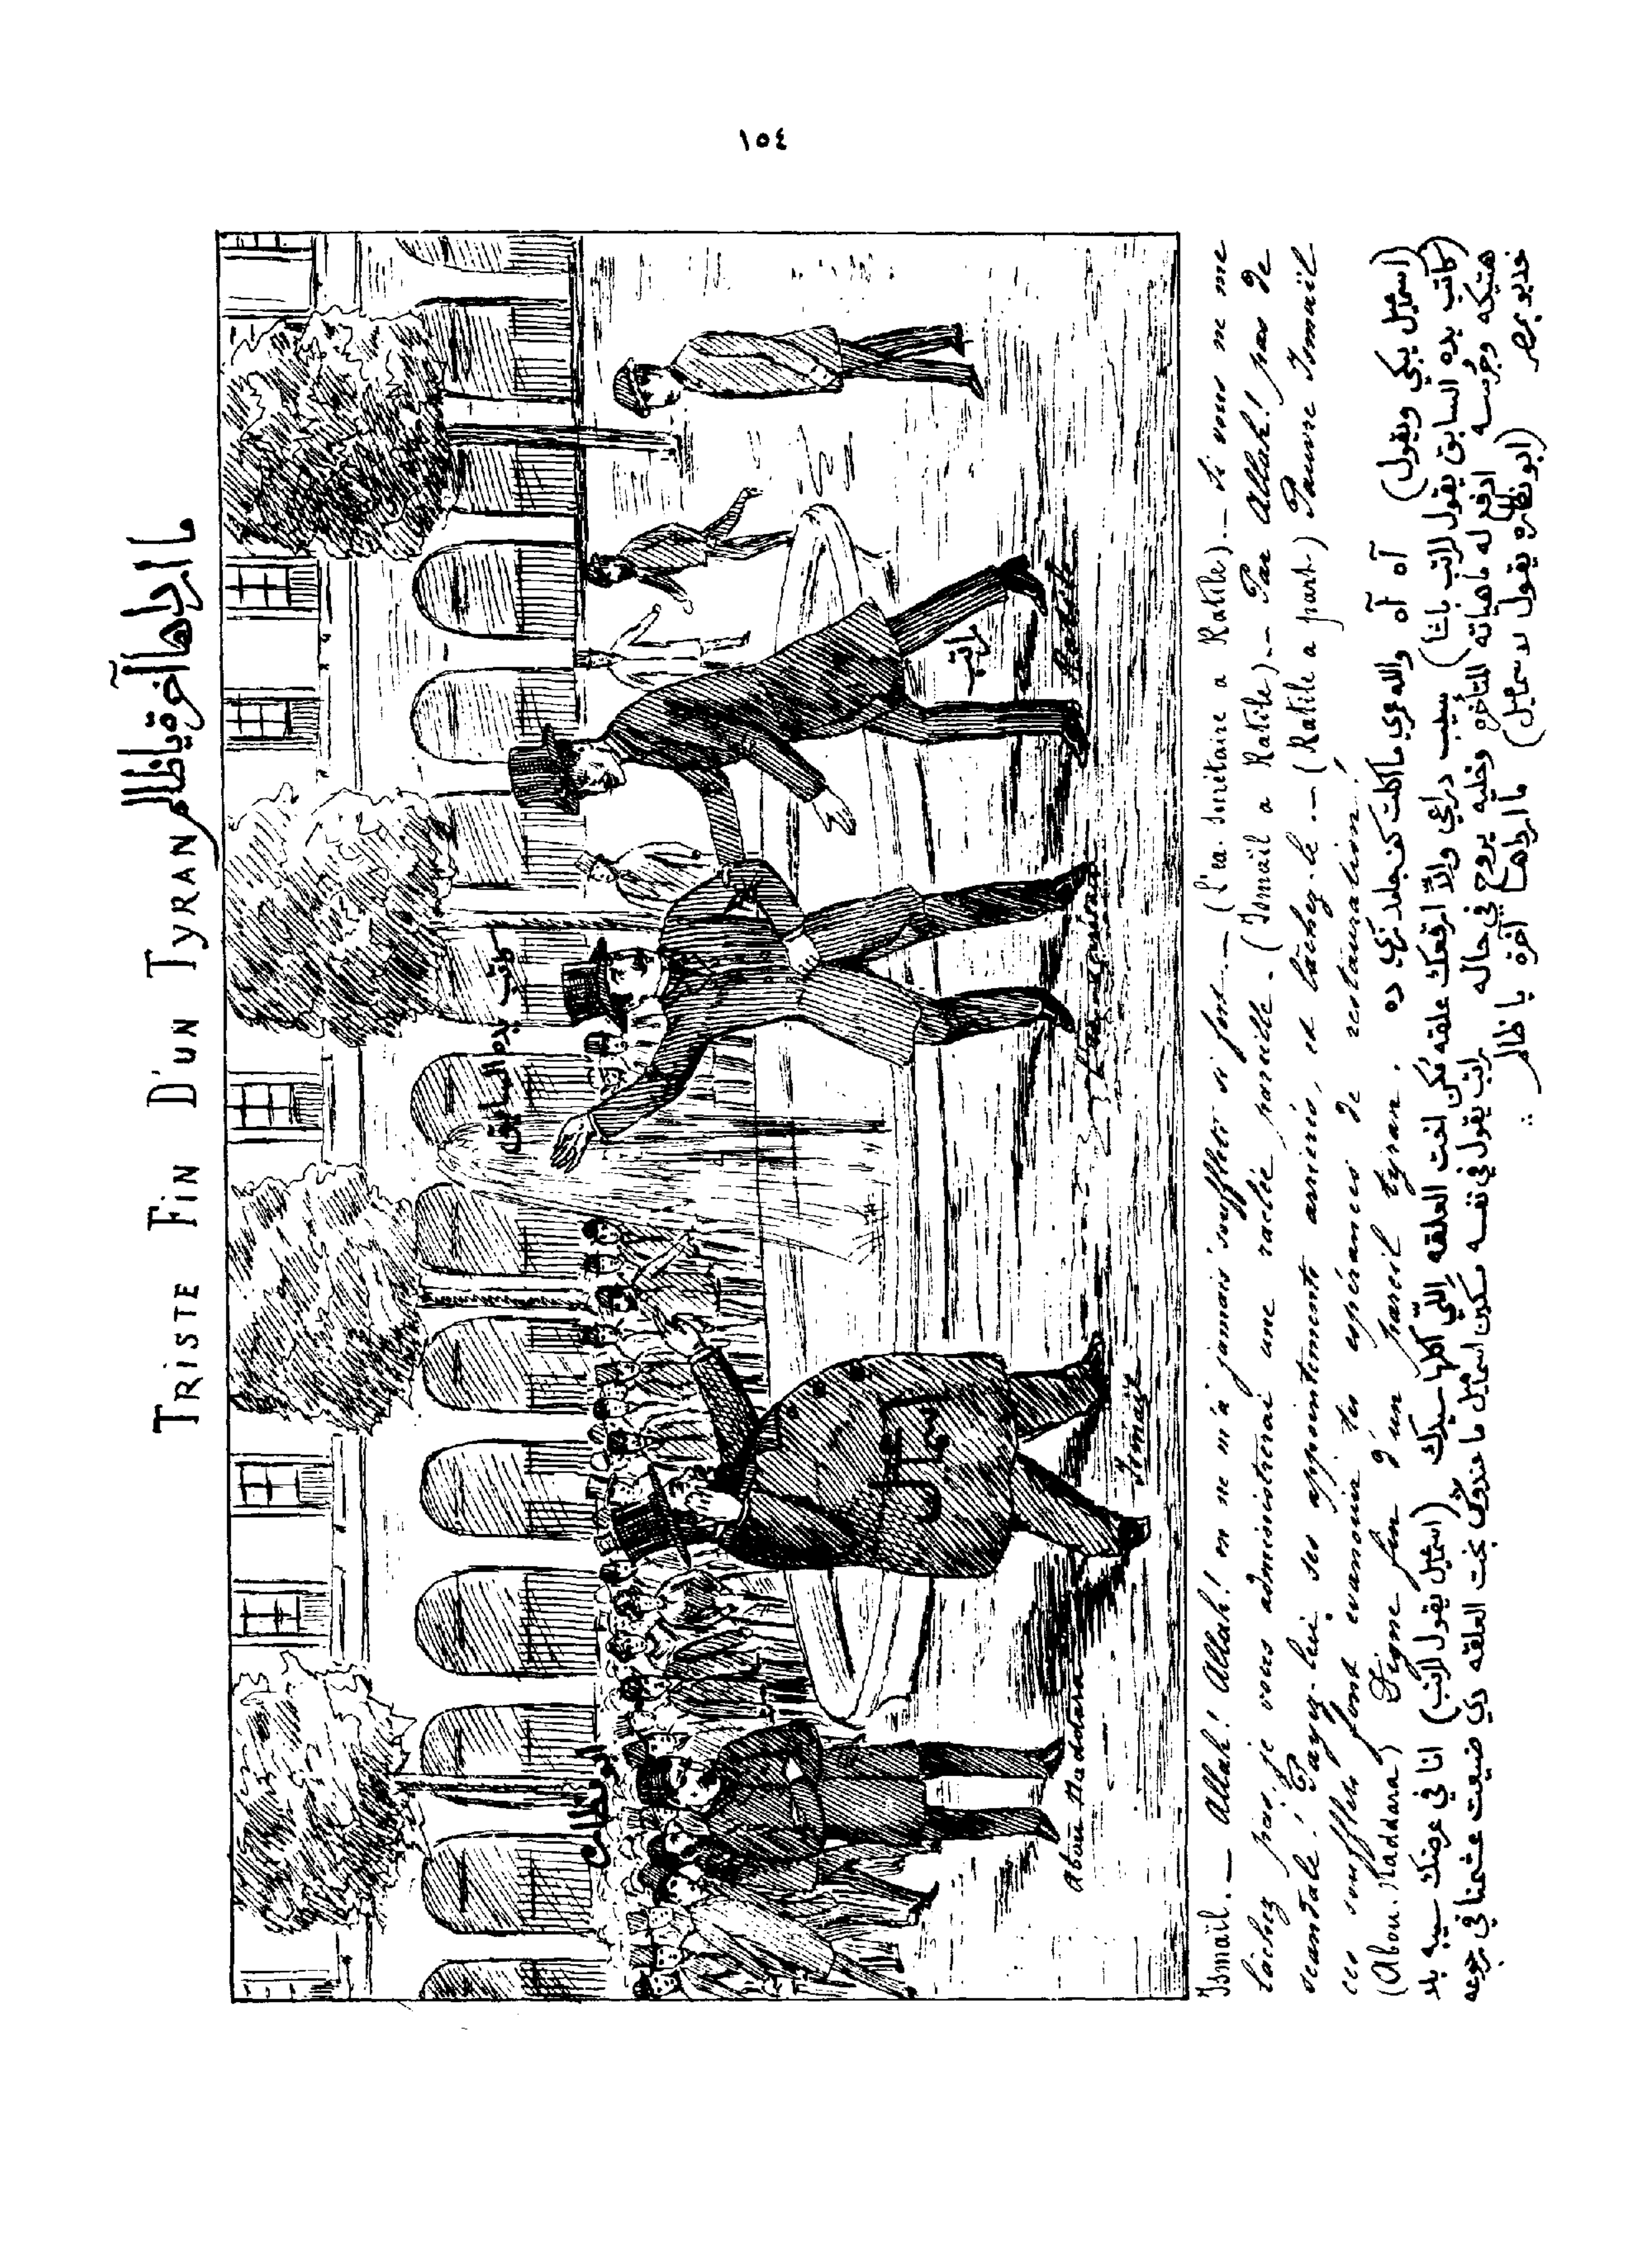 ١٥٤
TRISTE FIN D'UN TYRAN ما ابردها آخرة يا ظالم
ابو نظاره
كاتب يده السابق
راتب
اسماعيل
Abou Naddara
Ismaïl
Ratib
Ismaïl. — Allah! Allah! on ne m'a jamais souffleté si fort. — (L'ex. Secrétaire a Ratib). — Si vous ne me
lachez pas je vous administrerai une raclée pareille. (Ismaïl a Ratib). — Par Allah! pas de
scandale! Payez-lui ses appointements arriérés, et lachez-le. — (Ratib a part) Pauvre Ismaïl
ces soufflets font evanouir tes espérances de restauration!
(Abou. Naddara) Digne fin d'un pareil tyran.
آه آه والله عمري ما كلت كف جلد زي ده (اسماعيل يبكي ويقول)
سيب دراعي والا ارقعك علقه العن العلقه اللي اكلها سيدك (كاتب يده السابق يقول لراتب باشا)
انا في عرضك سيبه بلا هتيكه وجُرسه ادفع له ماهياته المتأخره وخليه يروح في حاله (اسماعيل يقول لراتب)
راتب يقول في نفسه مسكين اسماعيل ما عندوش بخت العلقه دي ضيعت عشمنا في رجوعه خديو بمصر
(ابو نظاره يقول لاسماعيل) ما ابردها آخرة يا ظالم